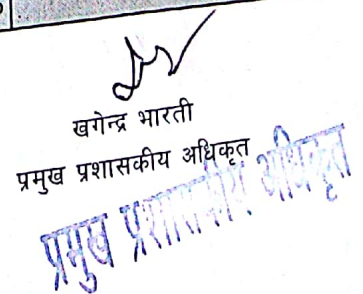 खगेन्द्र भारती
प्रमुख प्रशासकीय अधिकृत
प्रमुख प्रशासकीय अधिकृत